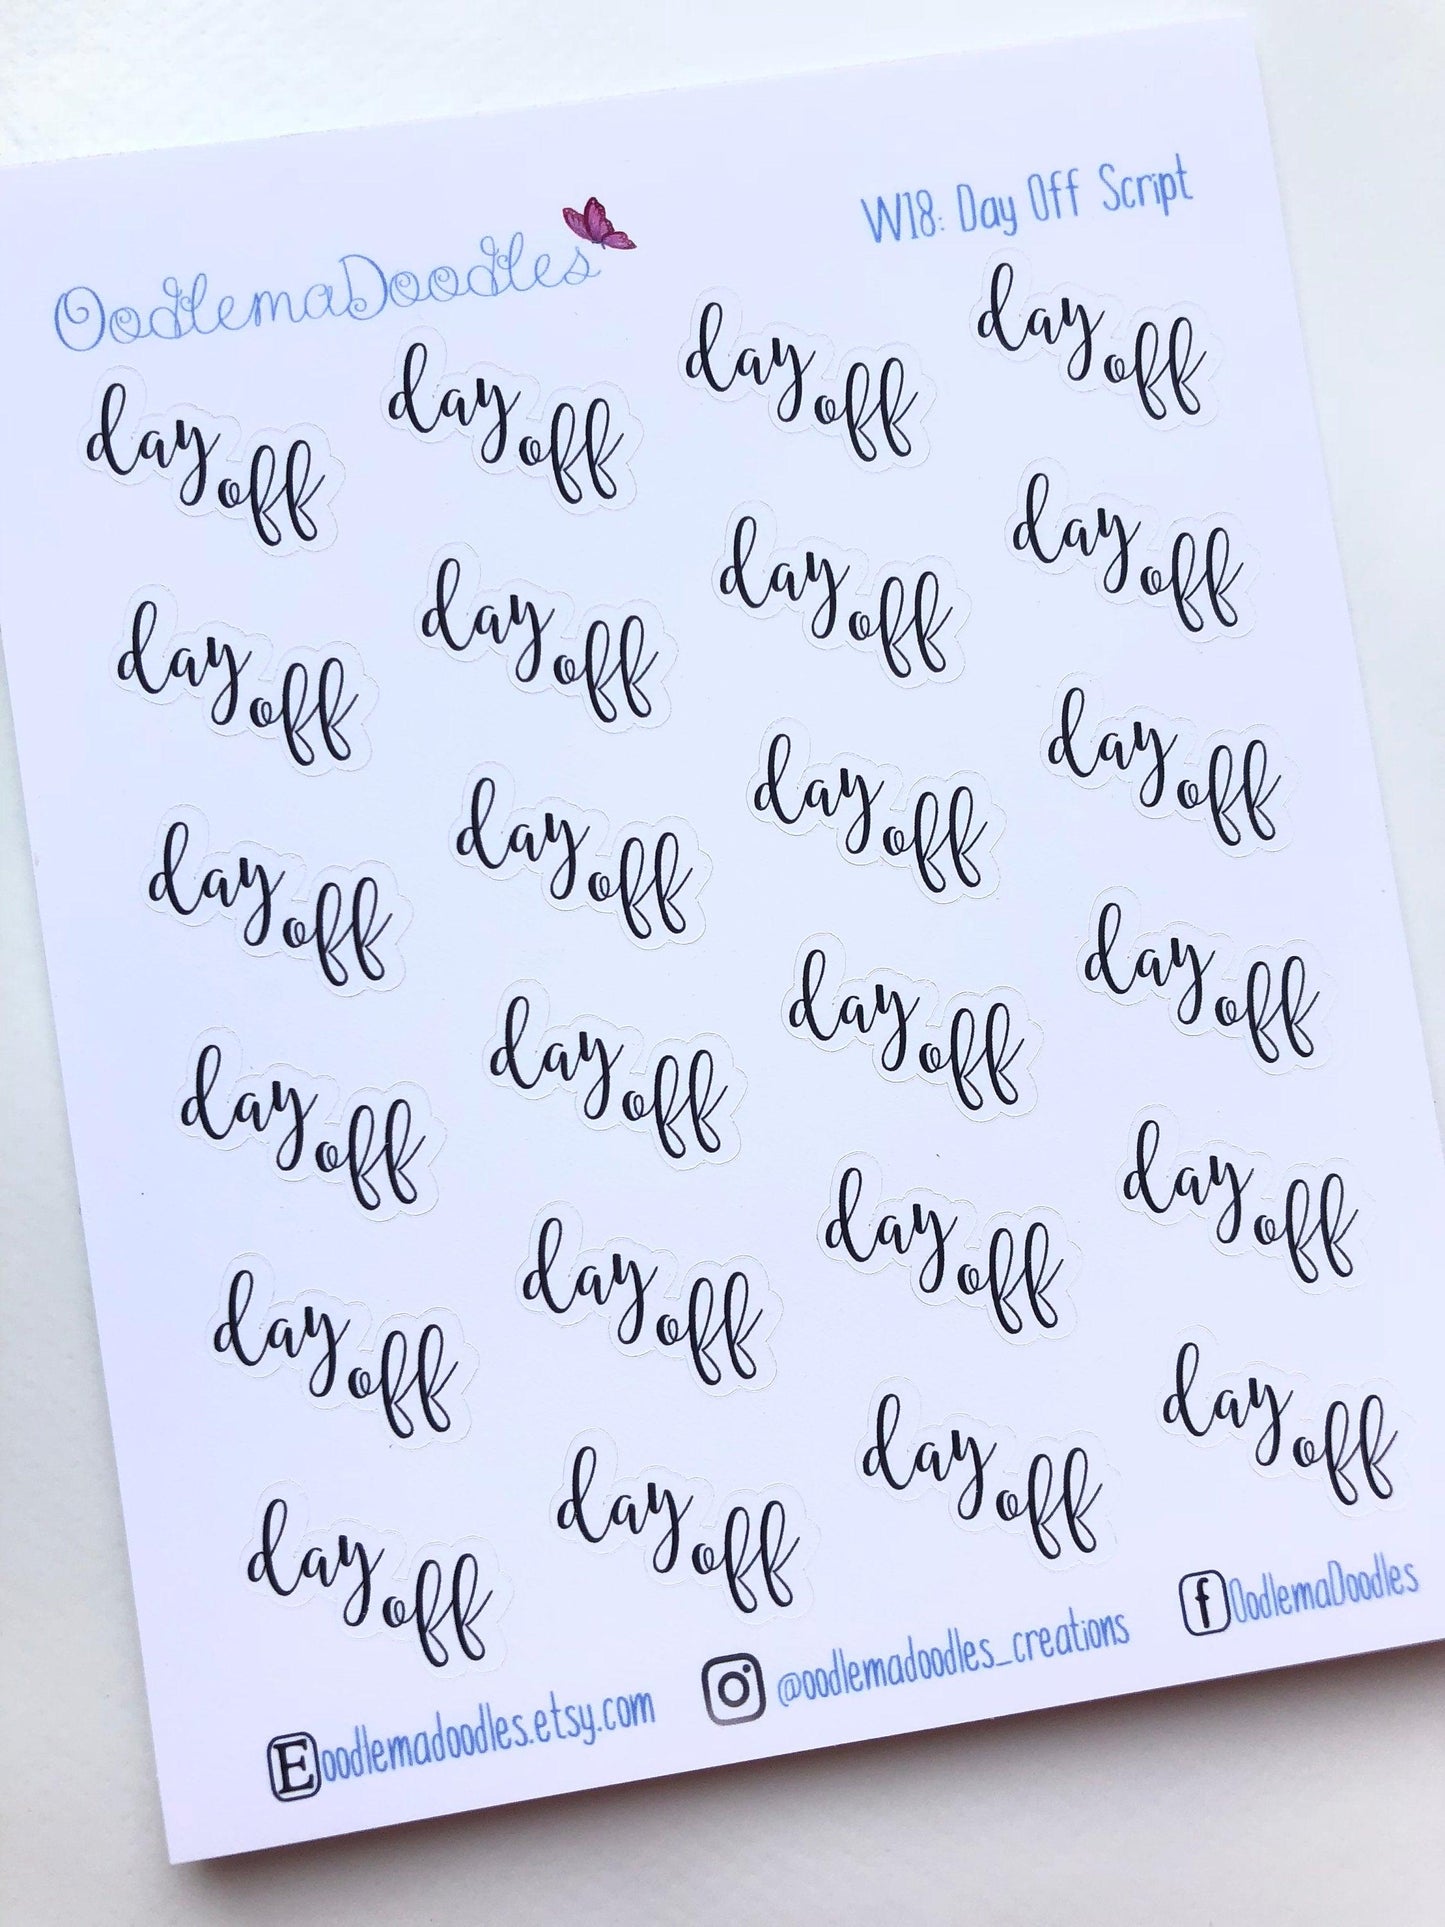 OodlemaDoodles
W18: Day Off Script
day off day off day off day off
day off day off day off day off
day off day off day off day off
day off day off day off day off
day off day off day off day off
day off day off day off day off
E oodlemadoodles.etsy.com
@oodlemadoodles_creations
f OodlemaDoodles